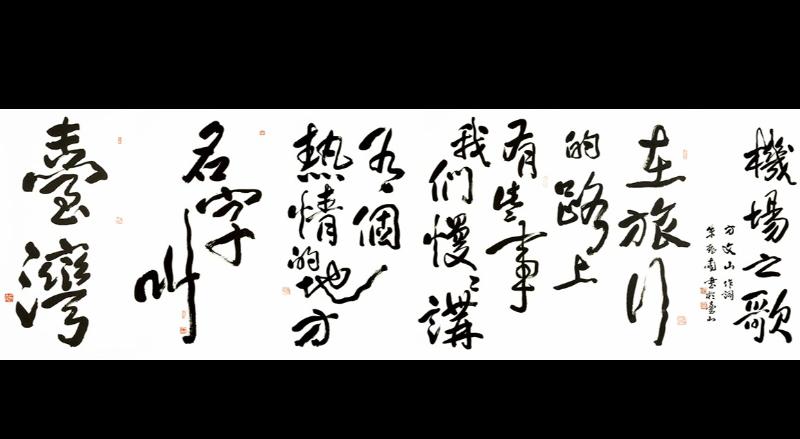 機場之歌
方文山 作詞
朱振南 書於臺北
在旅行
的路上
有些事
我們慢慢講
有個
熱情的地方
名字
叫
臺灣